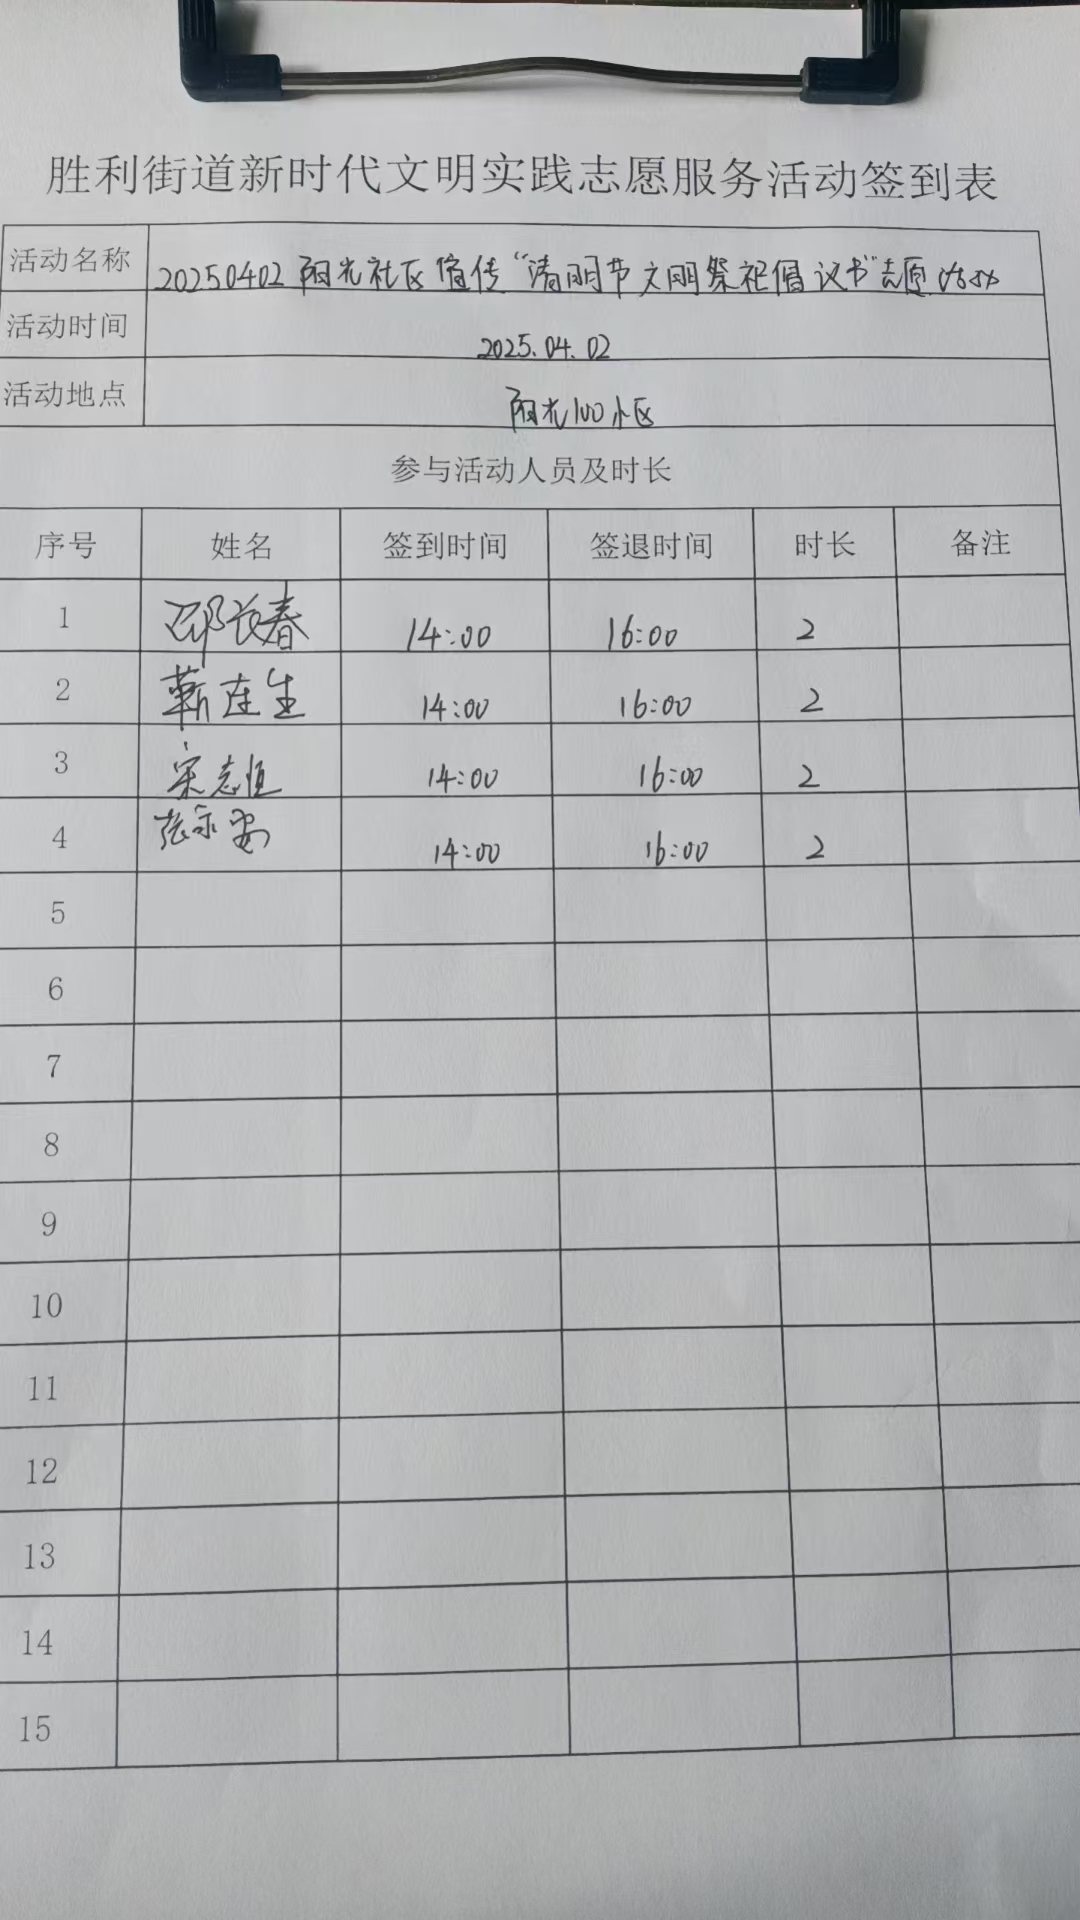 胜利街道新时代文明实践志愿服务活动签到表
活动名称 20250402阳光社区宣传“清明节文明祭祀倡议书”志愿活动
活动时间 2025.04.02
活动地点 阳光100小区
参与活动人员及时长
序号 姓名 签到时间 签退时间 时长 备注
1 邵长春 14:00 16:00 2
2 靳连生 14:00 16:00 2
3 宋志恒 14:00 16:00 2
4 张永 14:00 16:00 2
5
6
7
8
9
10
11
12
13
14
15